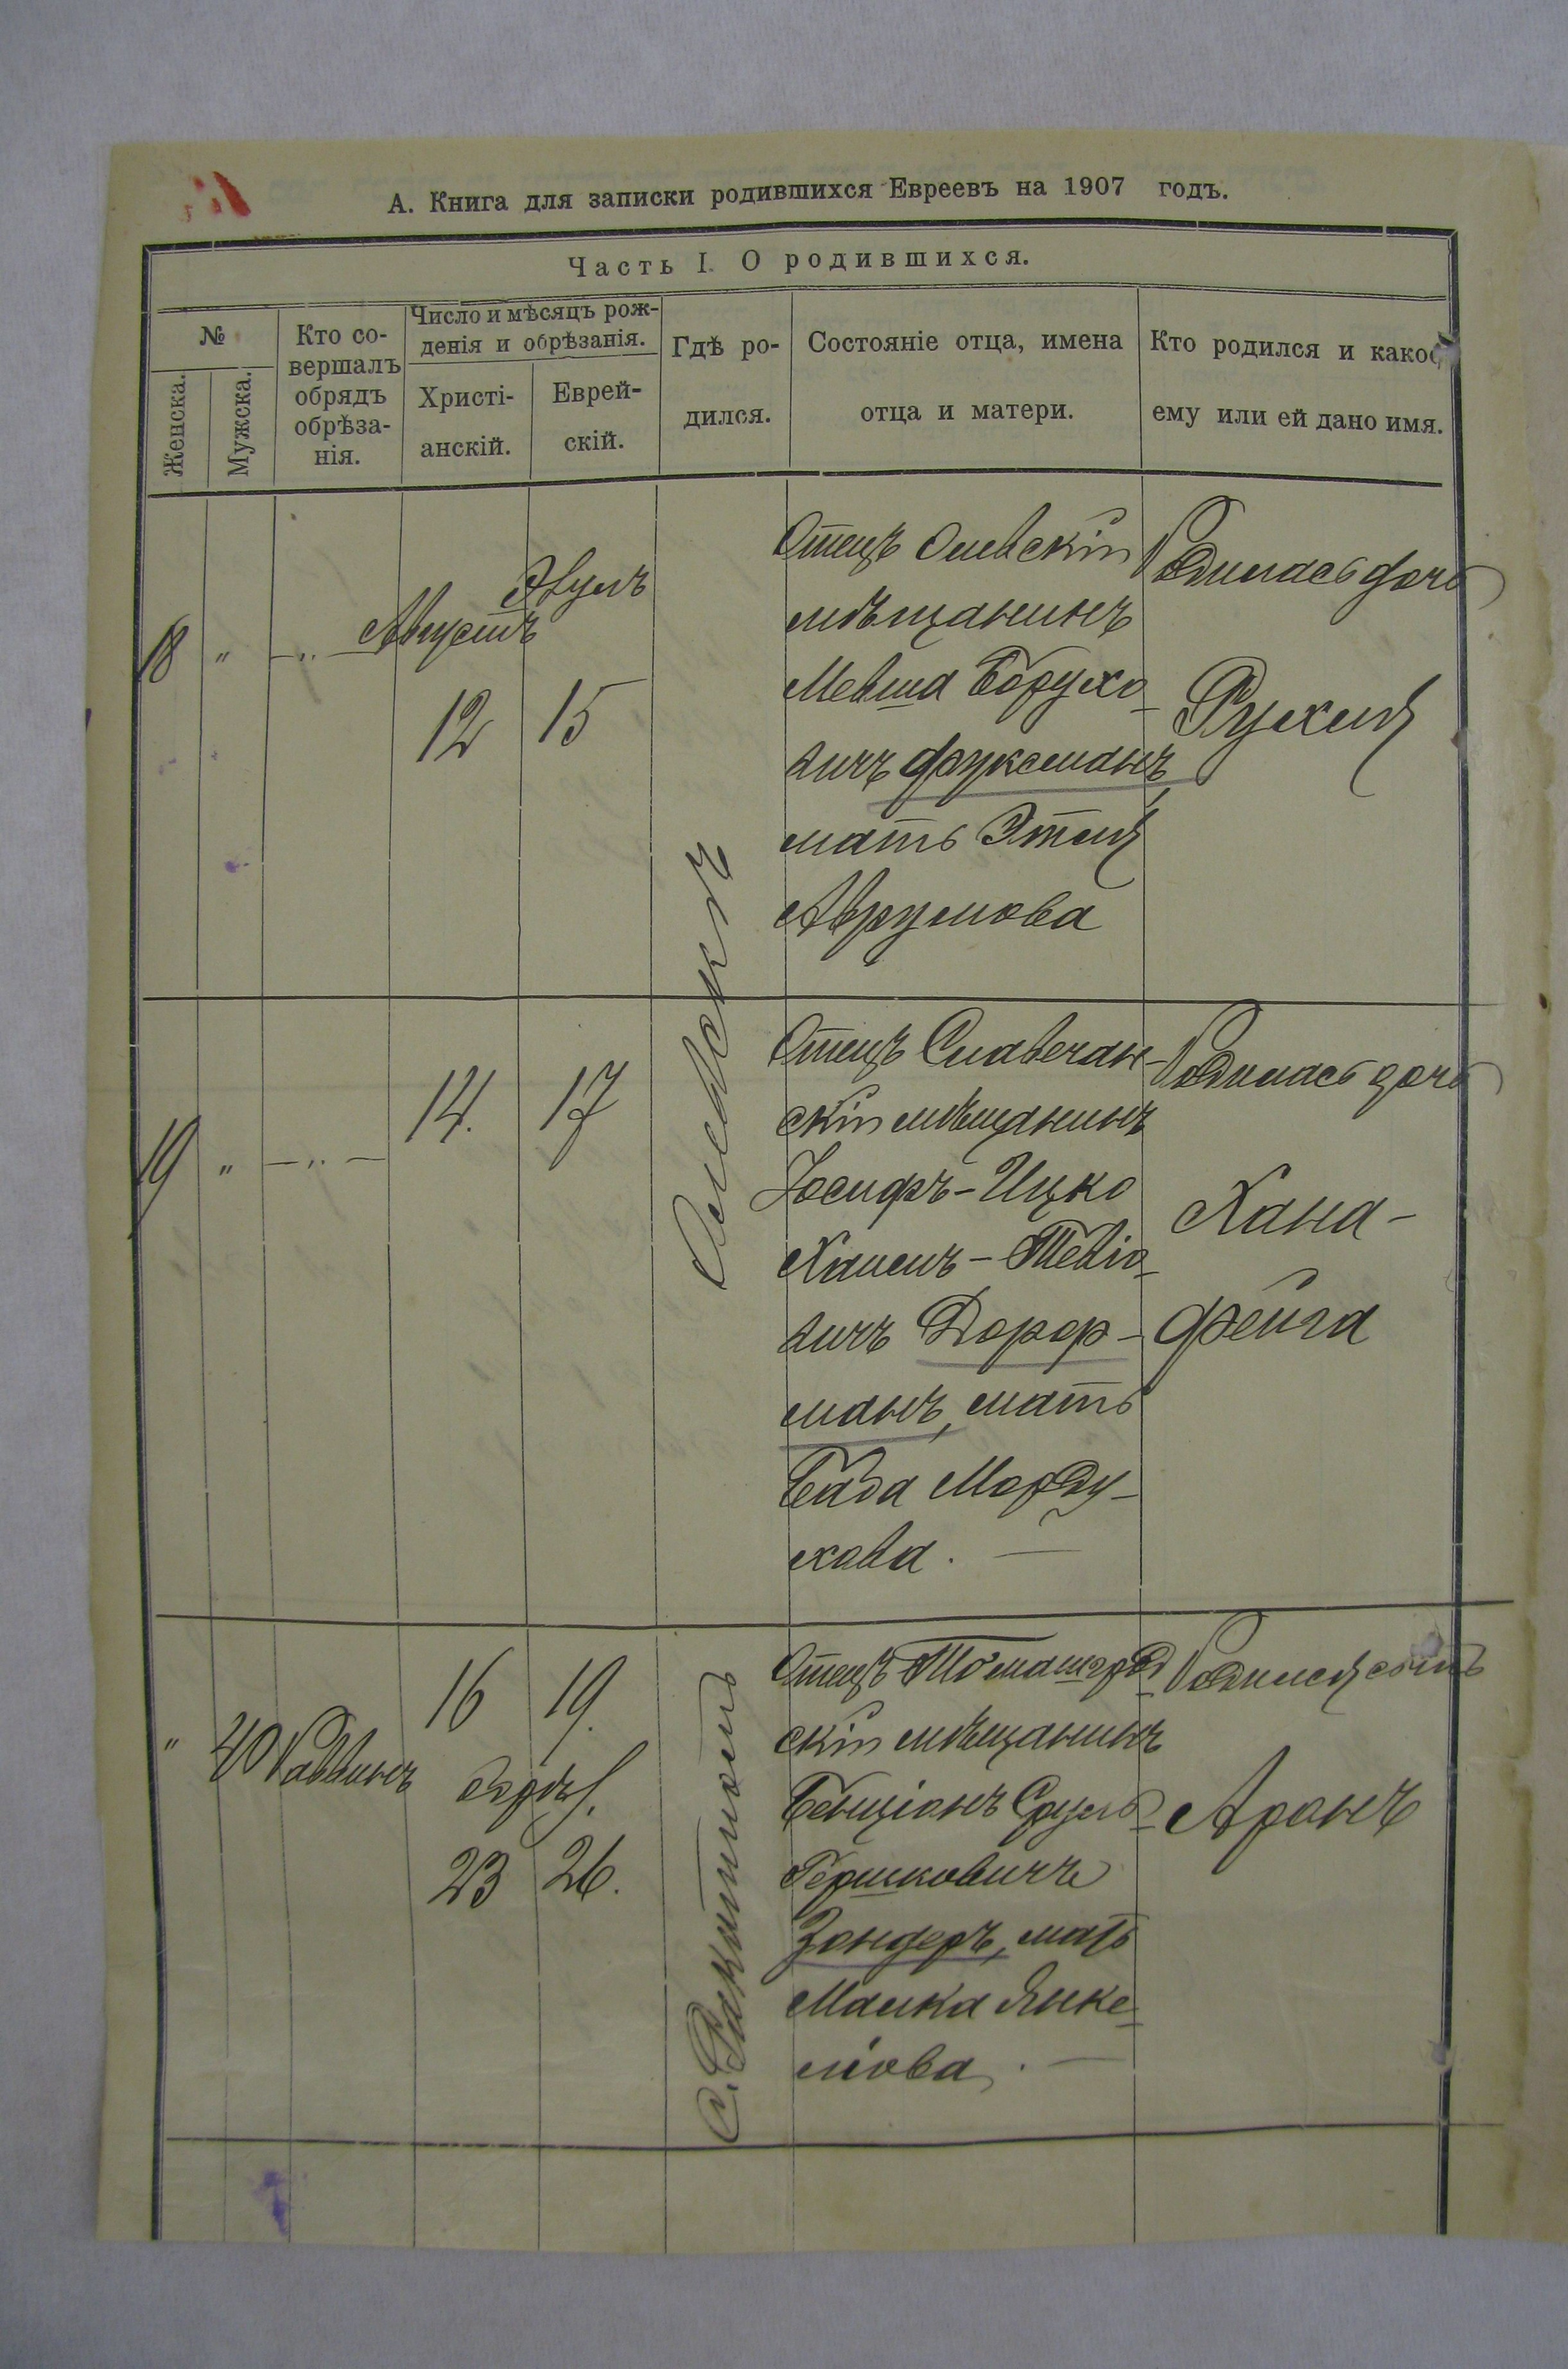 А. Книга для записки родившихся Евреевъ на 1907 годъ.
Часть I. О родившихся.
№
Женска.
Мужска.
Кто со-
вершалъ
обрядъ
обрѣза-
нія.
Число и мѣсяцъ рож-
денія и обрѣзанія.
Христі-
анскій.
Еврей-
скій.
Гдѣ ро-
дился.
Состояніе отца, имена
отца и матери.
Кто родился и какое
ему или ей дано имя.
18 " — " —
Августъ
12
Элулъ
15
Олевскъ
Отецъ Олевскій
мѣщанинъ
Мевша Борухо-
вичъ Фуксманъ,
мать Этля
Аврумова
Родилась дочь
Рухля
19 " — " —
14.
17
Отецъ Словечан-
скій мѣщанинъ
Іосифъ-Ицко
Хаимъ-Тевіо-
вичъ Дорф-
манъ, мать
Бába Морду-
хова. —
Родилась дочь
Хана-
Фейга
" 40 Раввинъ
16 19.
обрѣз.
23 26.
С. Ракитно
Отецъ Томашгрод-
скій мѣщанинъ
Бенціонъ Сруль-
Гершковичъ
Зондеръ, мать
Малка Янке-
лева. —
Родился сынъ
Аронъ